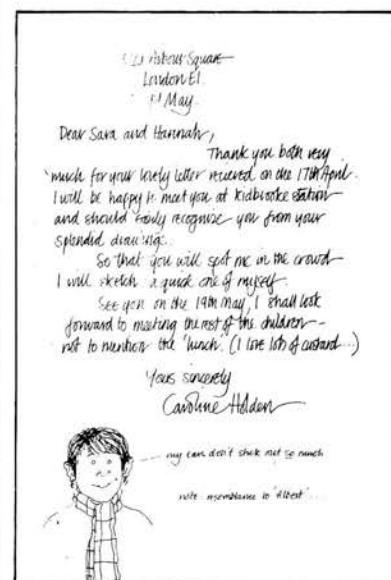 Square
London E1.
May.
Dear Sara and Hannah,
Thank you both very
much for your lovely letter recieved on the 17th April.
I will be happy to meet you at Kidbrooke station
and should easily recognise you from your
splendid drawings.
So that you will spot me in the crowd
I will sketch a quick one of myself.
See you on the 19th May, I shall look
forward to meeting the rest of the children -
not to mention the 'lunch'. (I love lots of custard...)
Yours sincerely
Caroline Holden
my ears don't stick out so much
note resemblance to 'Albert'...